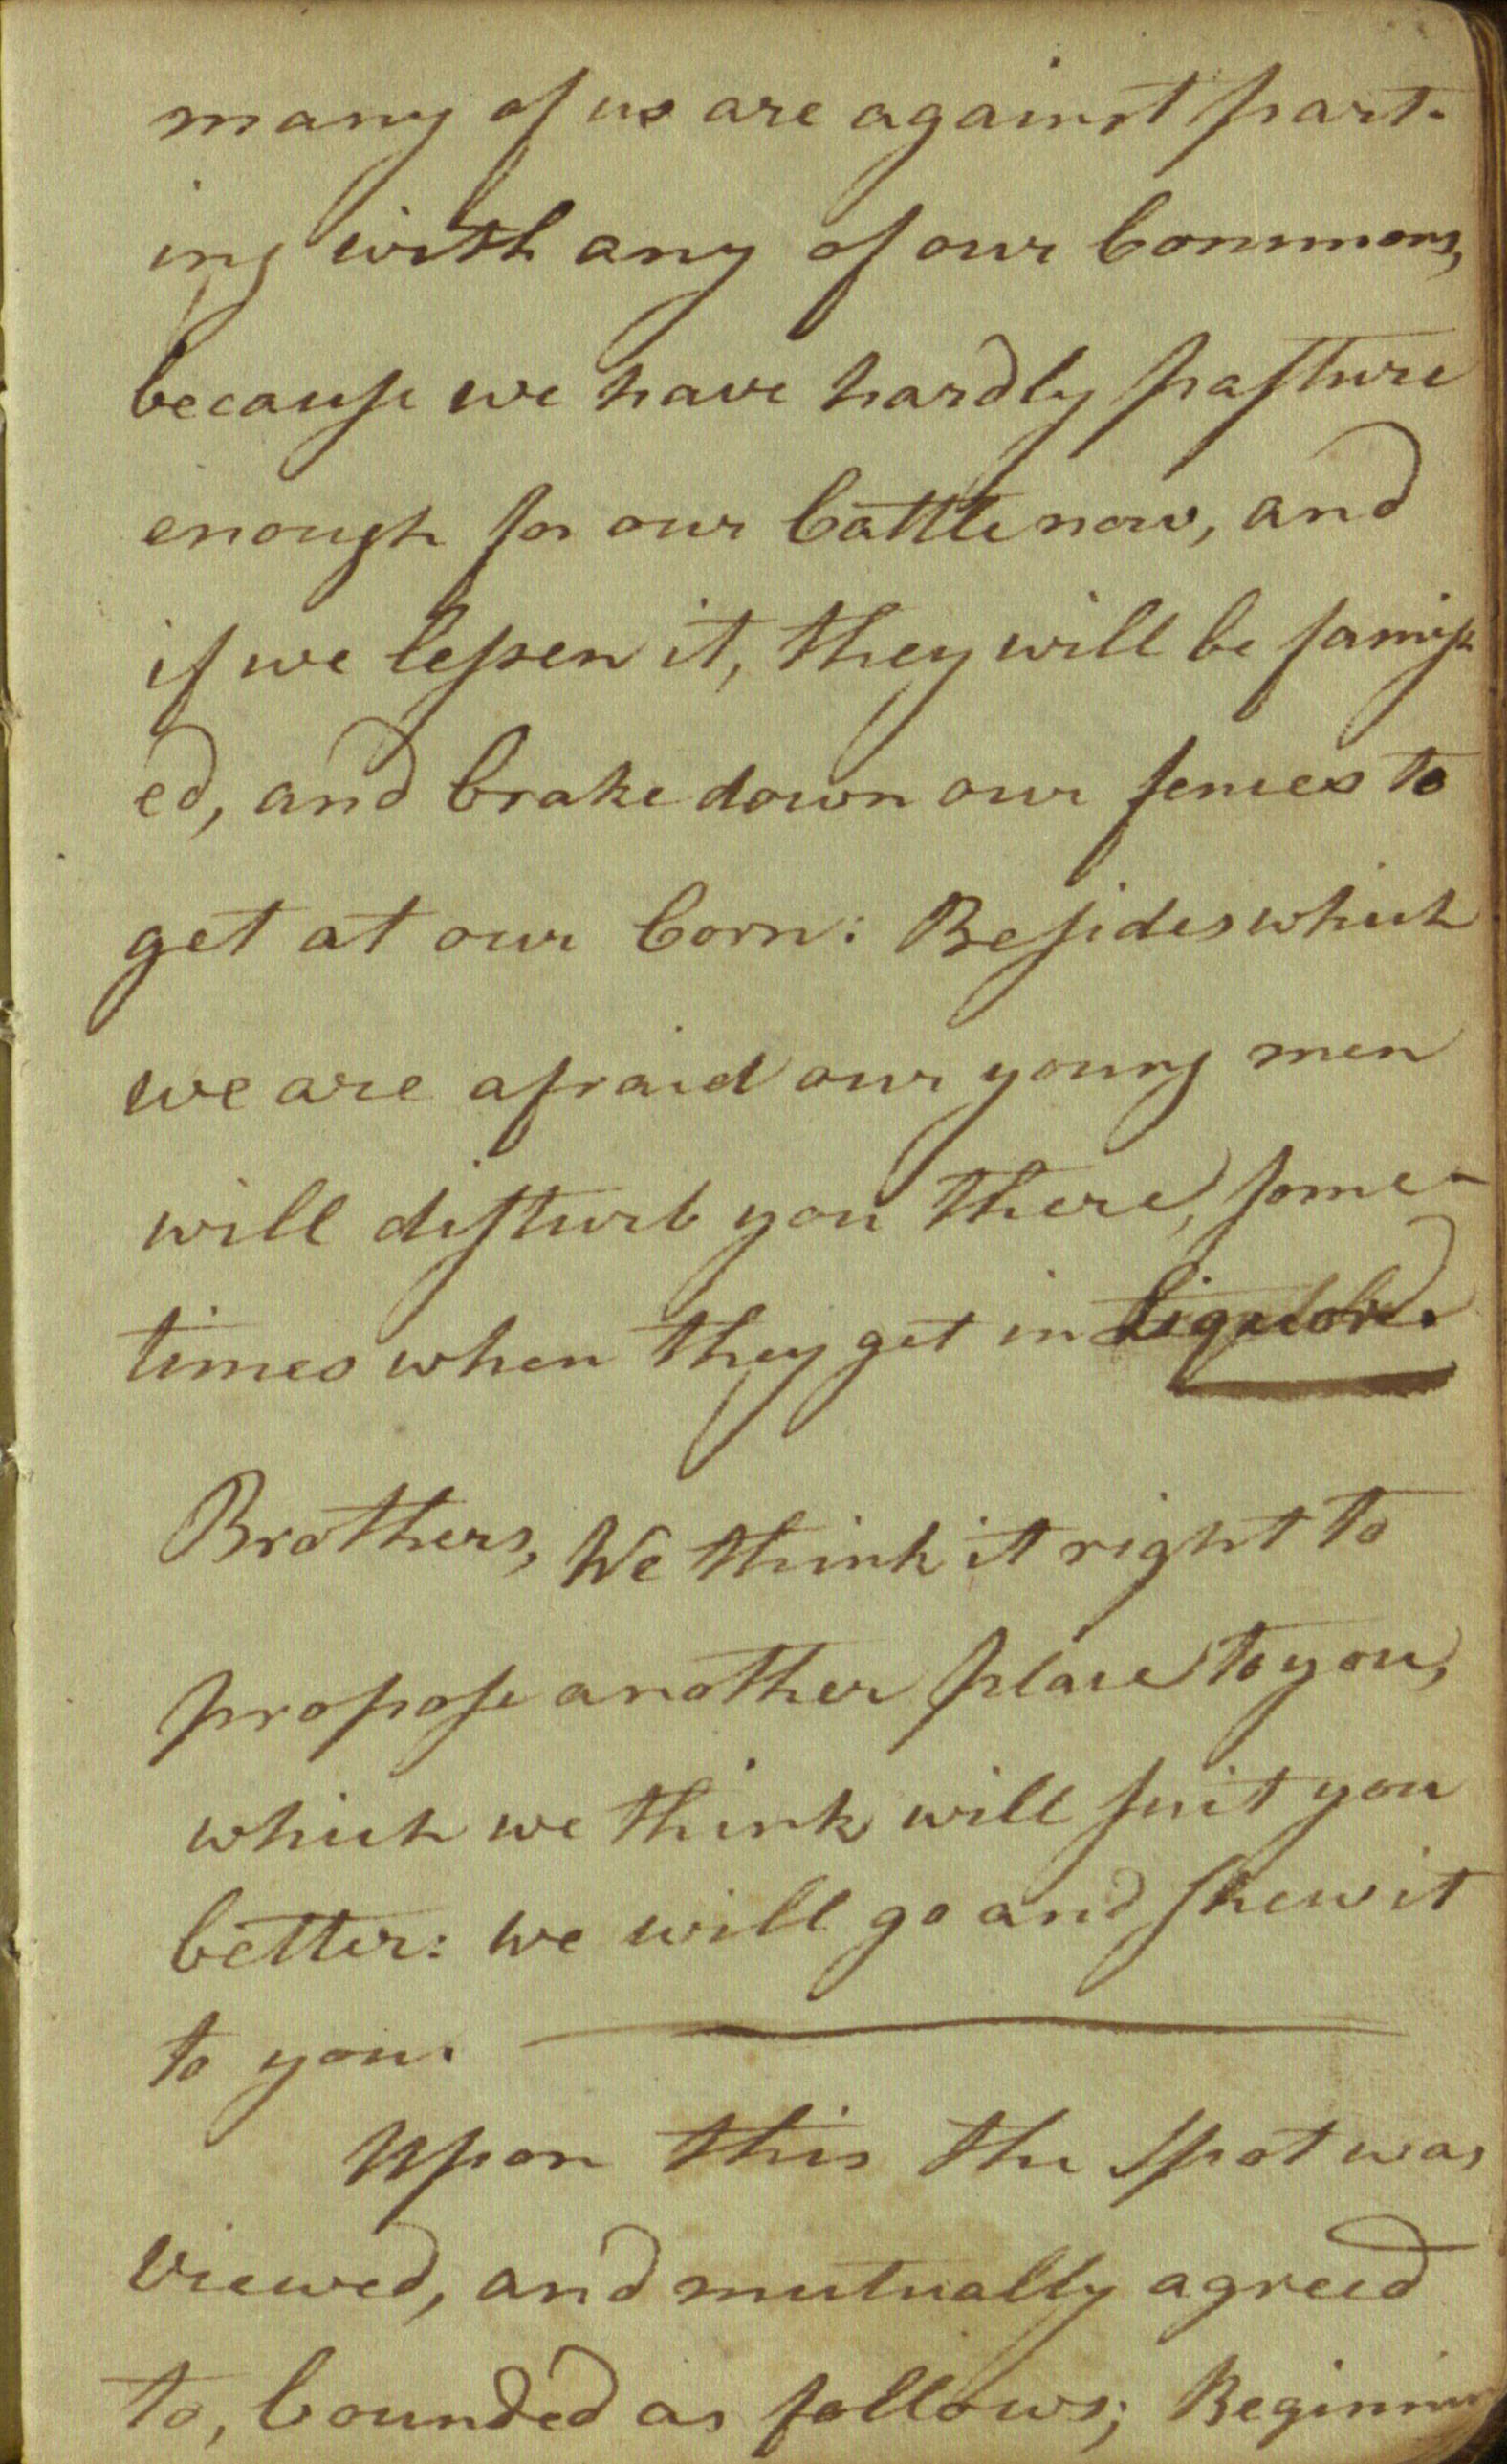 many of us are against part-
ing with any of our Commons,
because we have hardly pasture
enough for our Cattle now, and
if we lessen it, they will be famish
ed, and brake down our fences to
get at our Corn: Besides which
we are afraid our young men
will disturb you there, some-
times when they get in Liquor.
Brothers, We think it right to
propose another place to you,
which we think will suit you
better: we will go and shew it
to you.
Upon this the spot was
viewed, and mutually agreed
to, bounded as follows; Beginnin